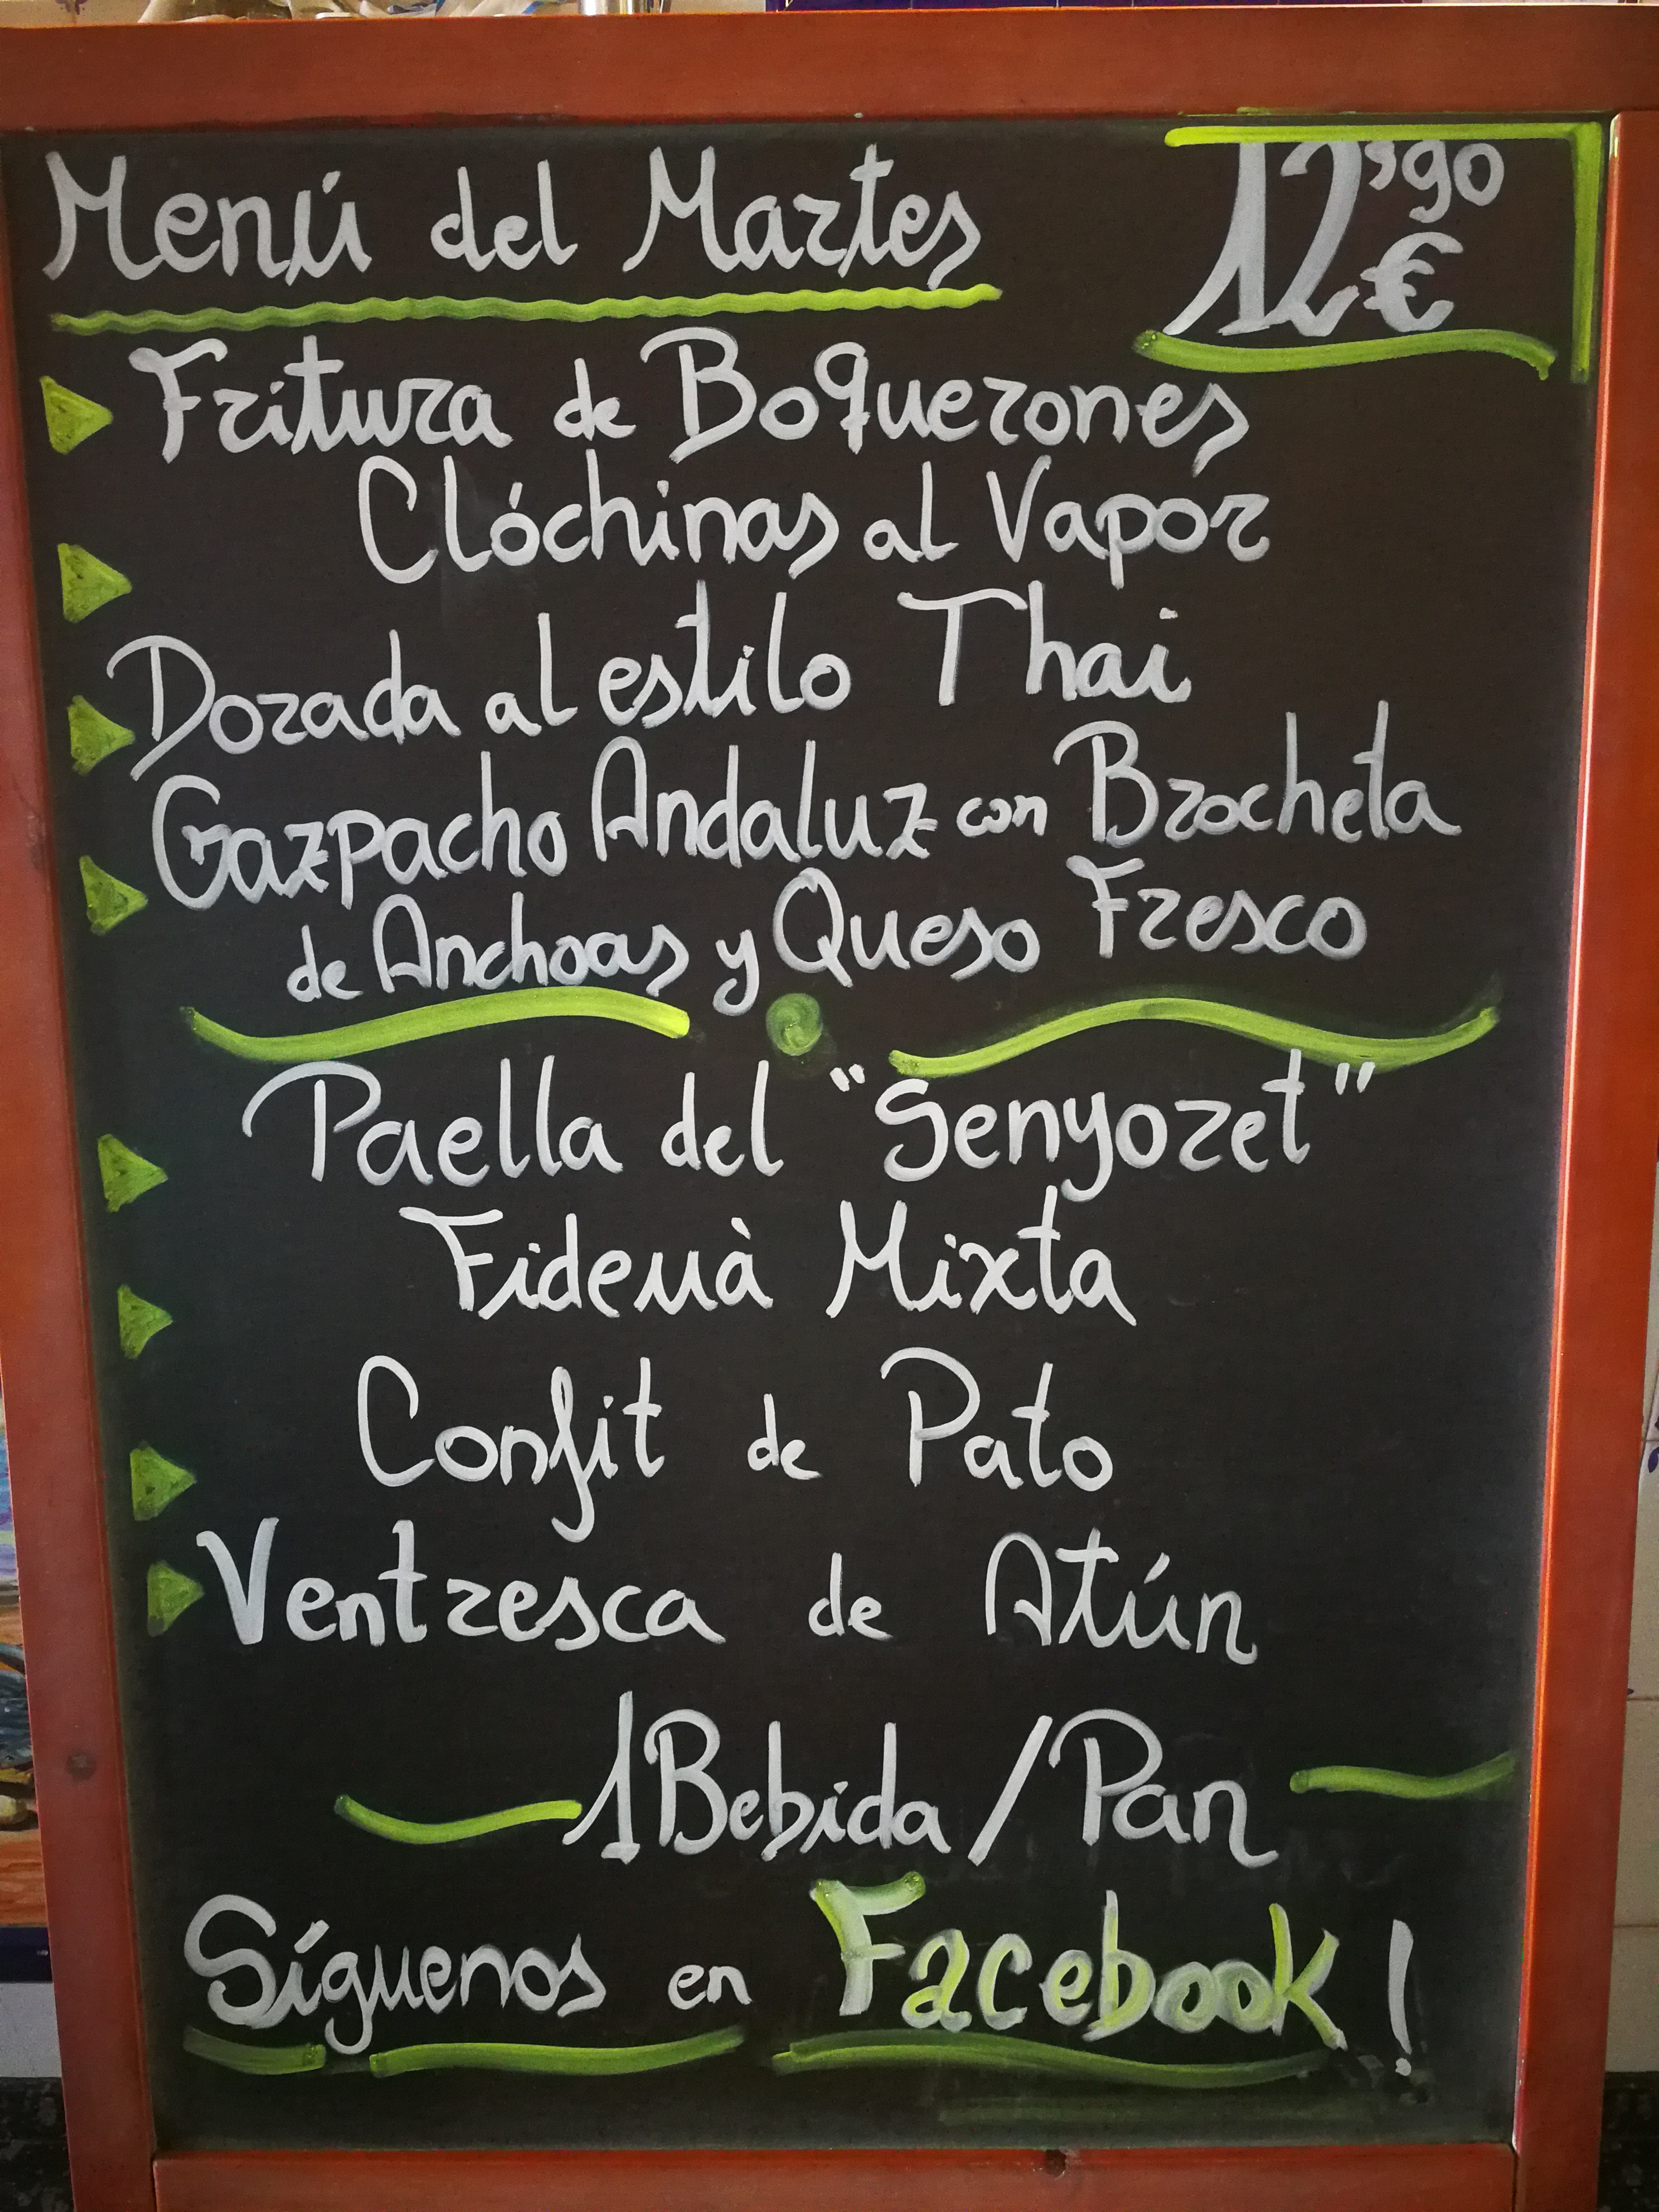 Menú del Martes
12'90
€
Fritura de Boquerones
Clóchinas al Vapor
Dorada al estilo Thai
Gazpacho Andaluz con Brocheta
de Anchoas y Queso Fresco
Paella del "Senyoret"
Fideuà Mixta
Confit de Pato
Ventresca de Atún
1 Bebida / Pan
Síguenos en Facebook!